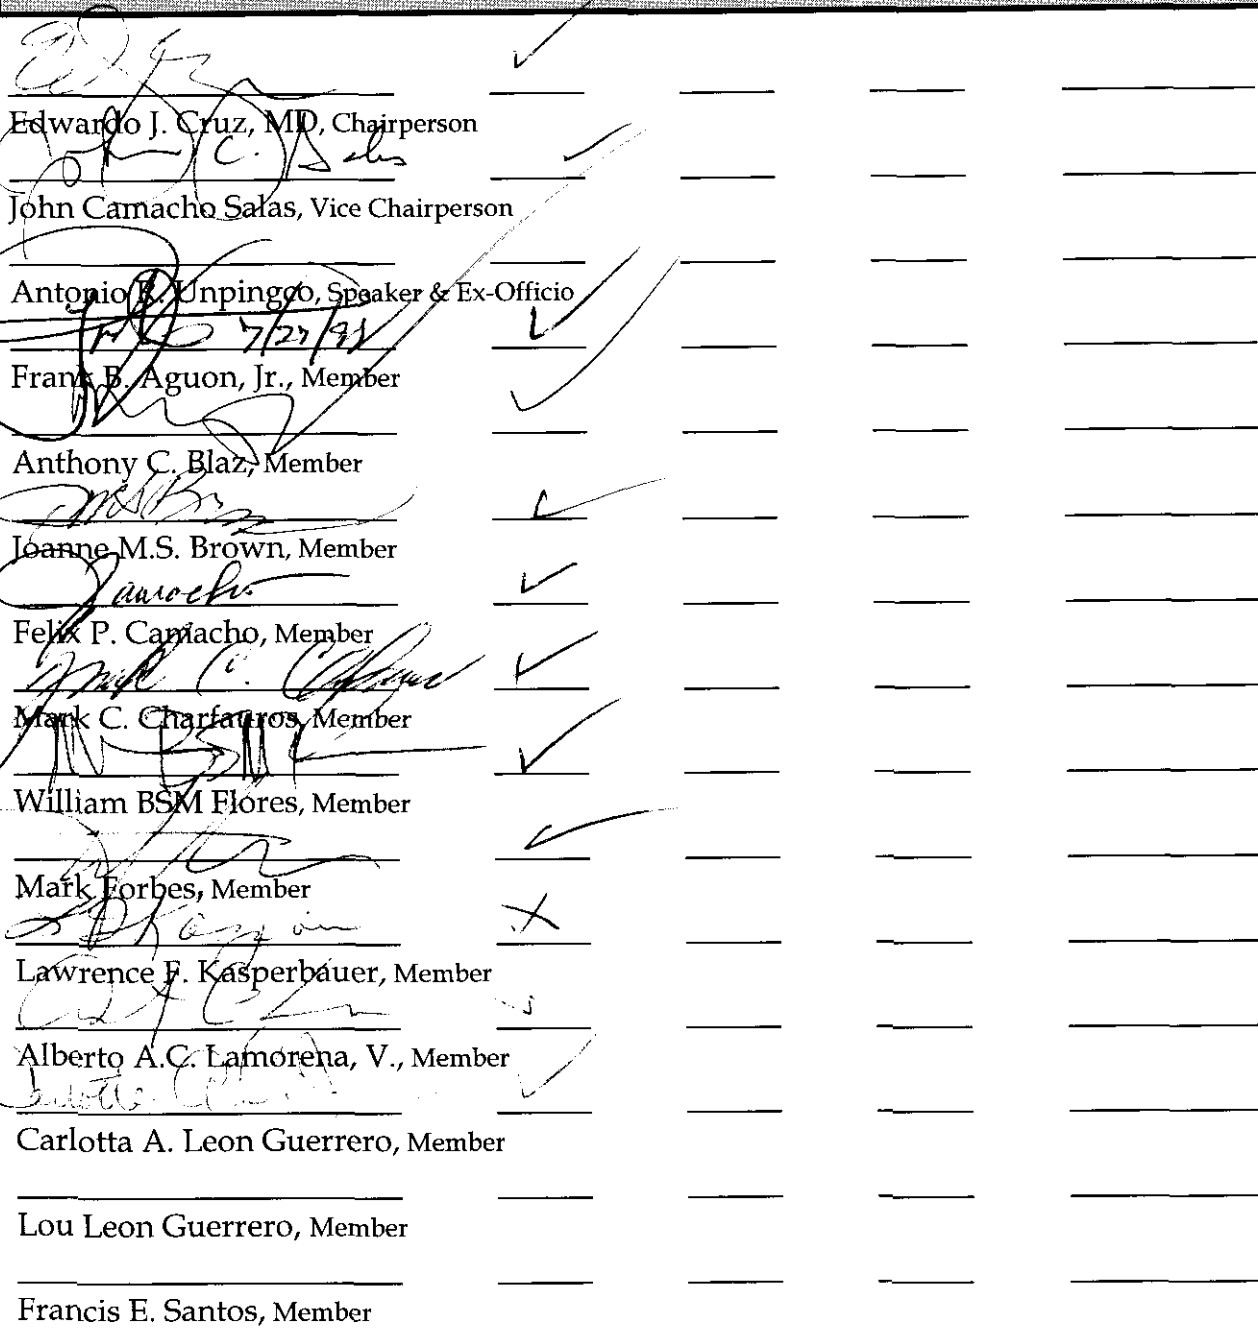 Edwardo J. Cruz, MD, Chairperson
John C. Salas
John Camacho Salas, Vice Chairperson
Antonio R. Unpingco, Speaker & Ex-Officio
7/27/98
Frank B. Aguon, Jr., Member
Anthony C. Blaz, Member
JMS Brown
Joanne M.S. Brown, Member
Camacho
Felix P. Camacho, Member
Mark C. Charfauros
Mark C. Charfauros, Member
William BSM Flores, Member
Mark Forbes, Member
Lawrence F. Kasperbauer, Member
Alberto A.C. Lamorena, V., Member
Carlotta A. Leon Guerrero, Member
Lou Leon Guerrero, Member
Francis E. Santos, Member